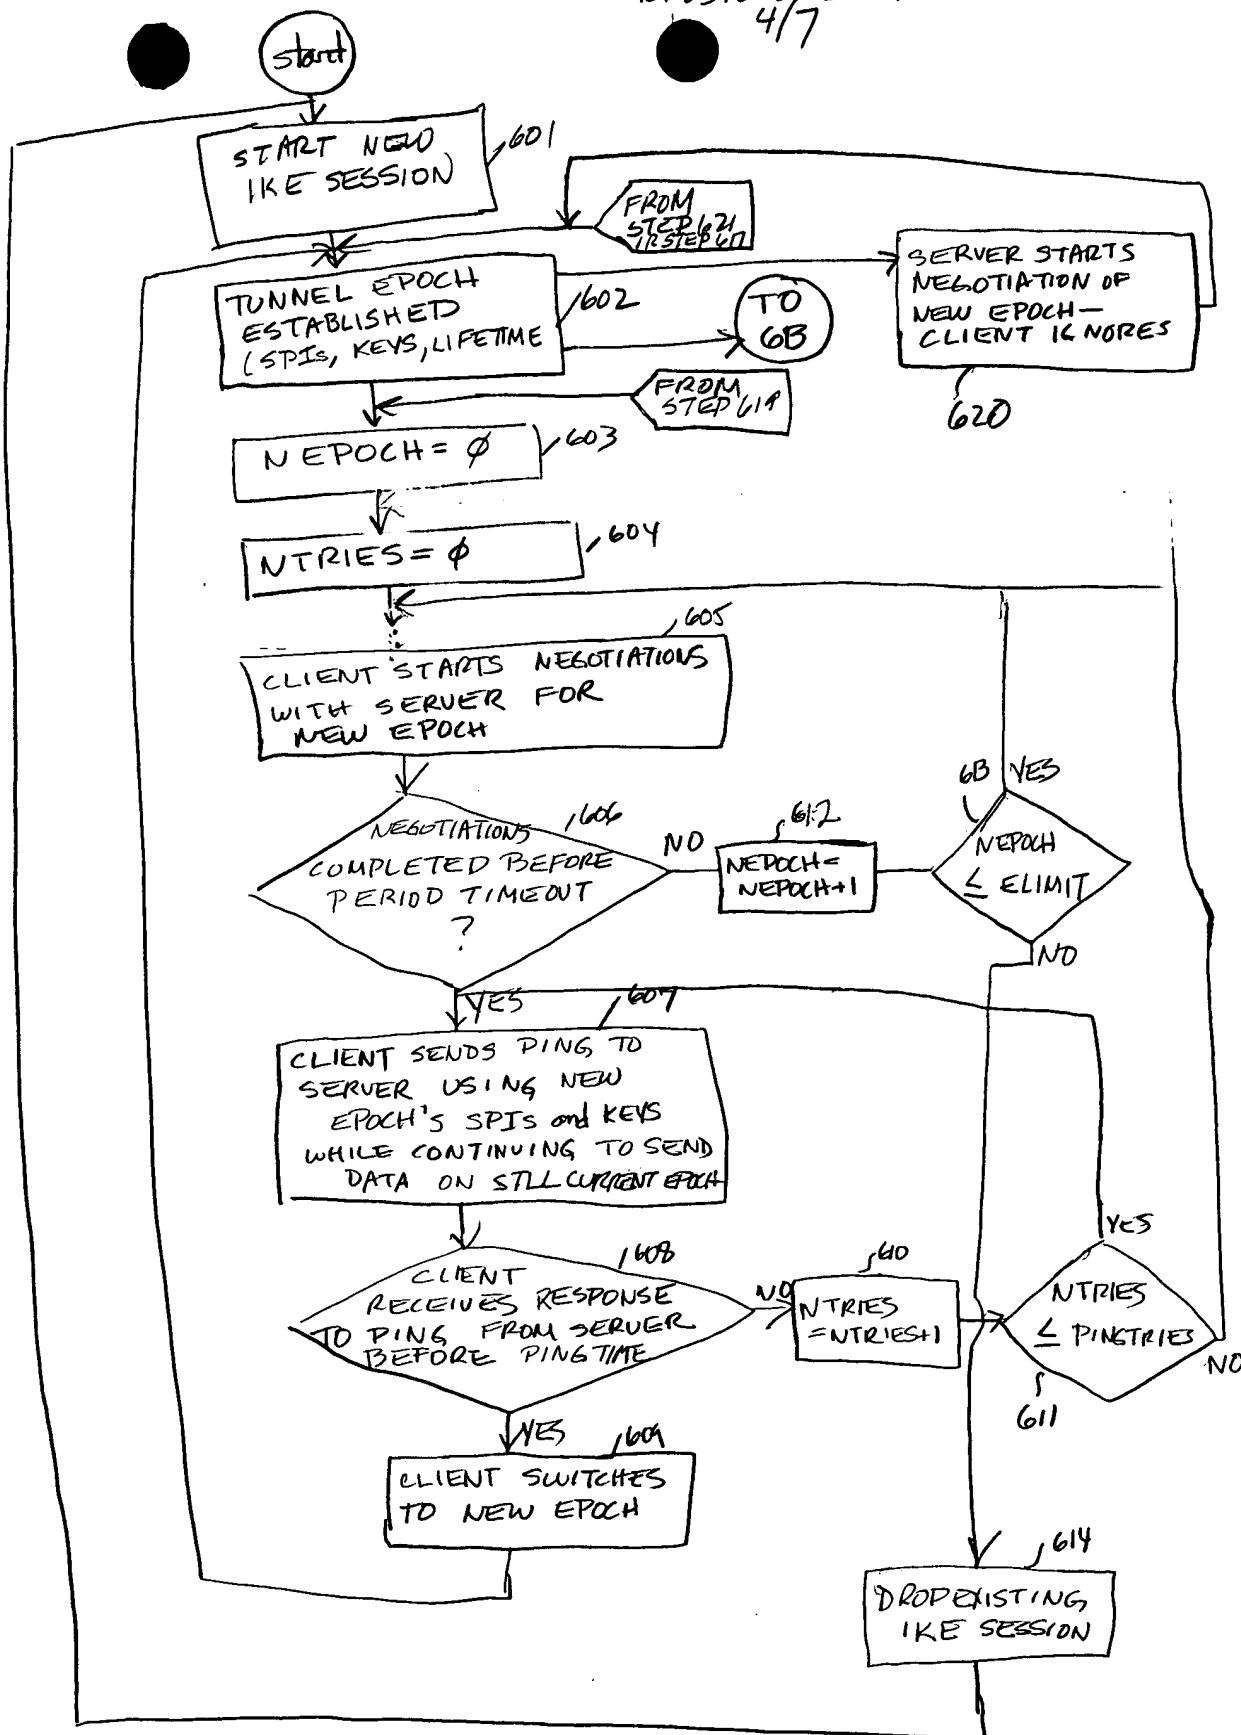 4/7
start
START NEW
IKE SESSION
601
FROM
STEP 621
STEP 617
TUNNEL EPOCH
ESTABLISHED
(SPIs, KEYS, LIFETIME
602
TO
6B
SERVER STARTS
NEGOTIATION OF
NEW EPOCH—
CLIENT IGNORES
620
FROM
STEP 619
NEPOCH = ϕ
603
NTRIES = ϕ
604
605
CLIENT STARTS NEGOTIATIONS
WITH SERVER FOR
NEW EPOCH
606
NEGOTIATIONS
COMPLETED BEFORE
PERIOD TIMEOUT
?
NO
612
NEPOCH =
NEPOCH+1
6B
YES
NEPOCH
≤ ELIMIT
NO
YES
607
CLIENT SENDS PING TO
SERVER USING NEW
EPOCH'S SPIs and KEYS
WHILE CONTINUING TO SEND
DATA ON STLL CURRENT EPOCH
608
CLIENT
RECEIVES RESPONSE
TO PING FROM SERVER
BEFORE PINGTIME
NO
610
NTRIES
=NTRIES+1
YES
NTRIES
≤ PINGTRIES
NO
611
YES
609
CLIENT SWITCHES
TO NEW EPOCH
614
DROP EXISTING
IKE SESSION